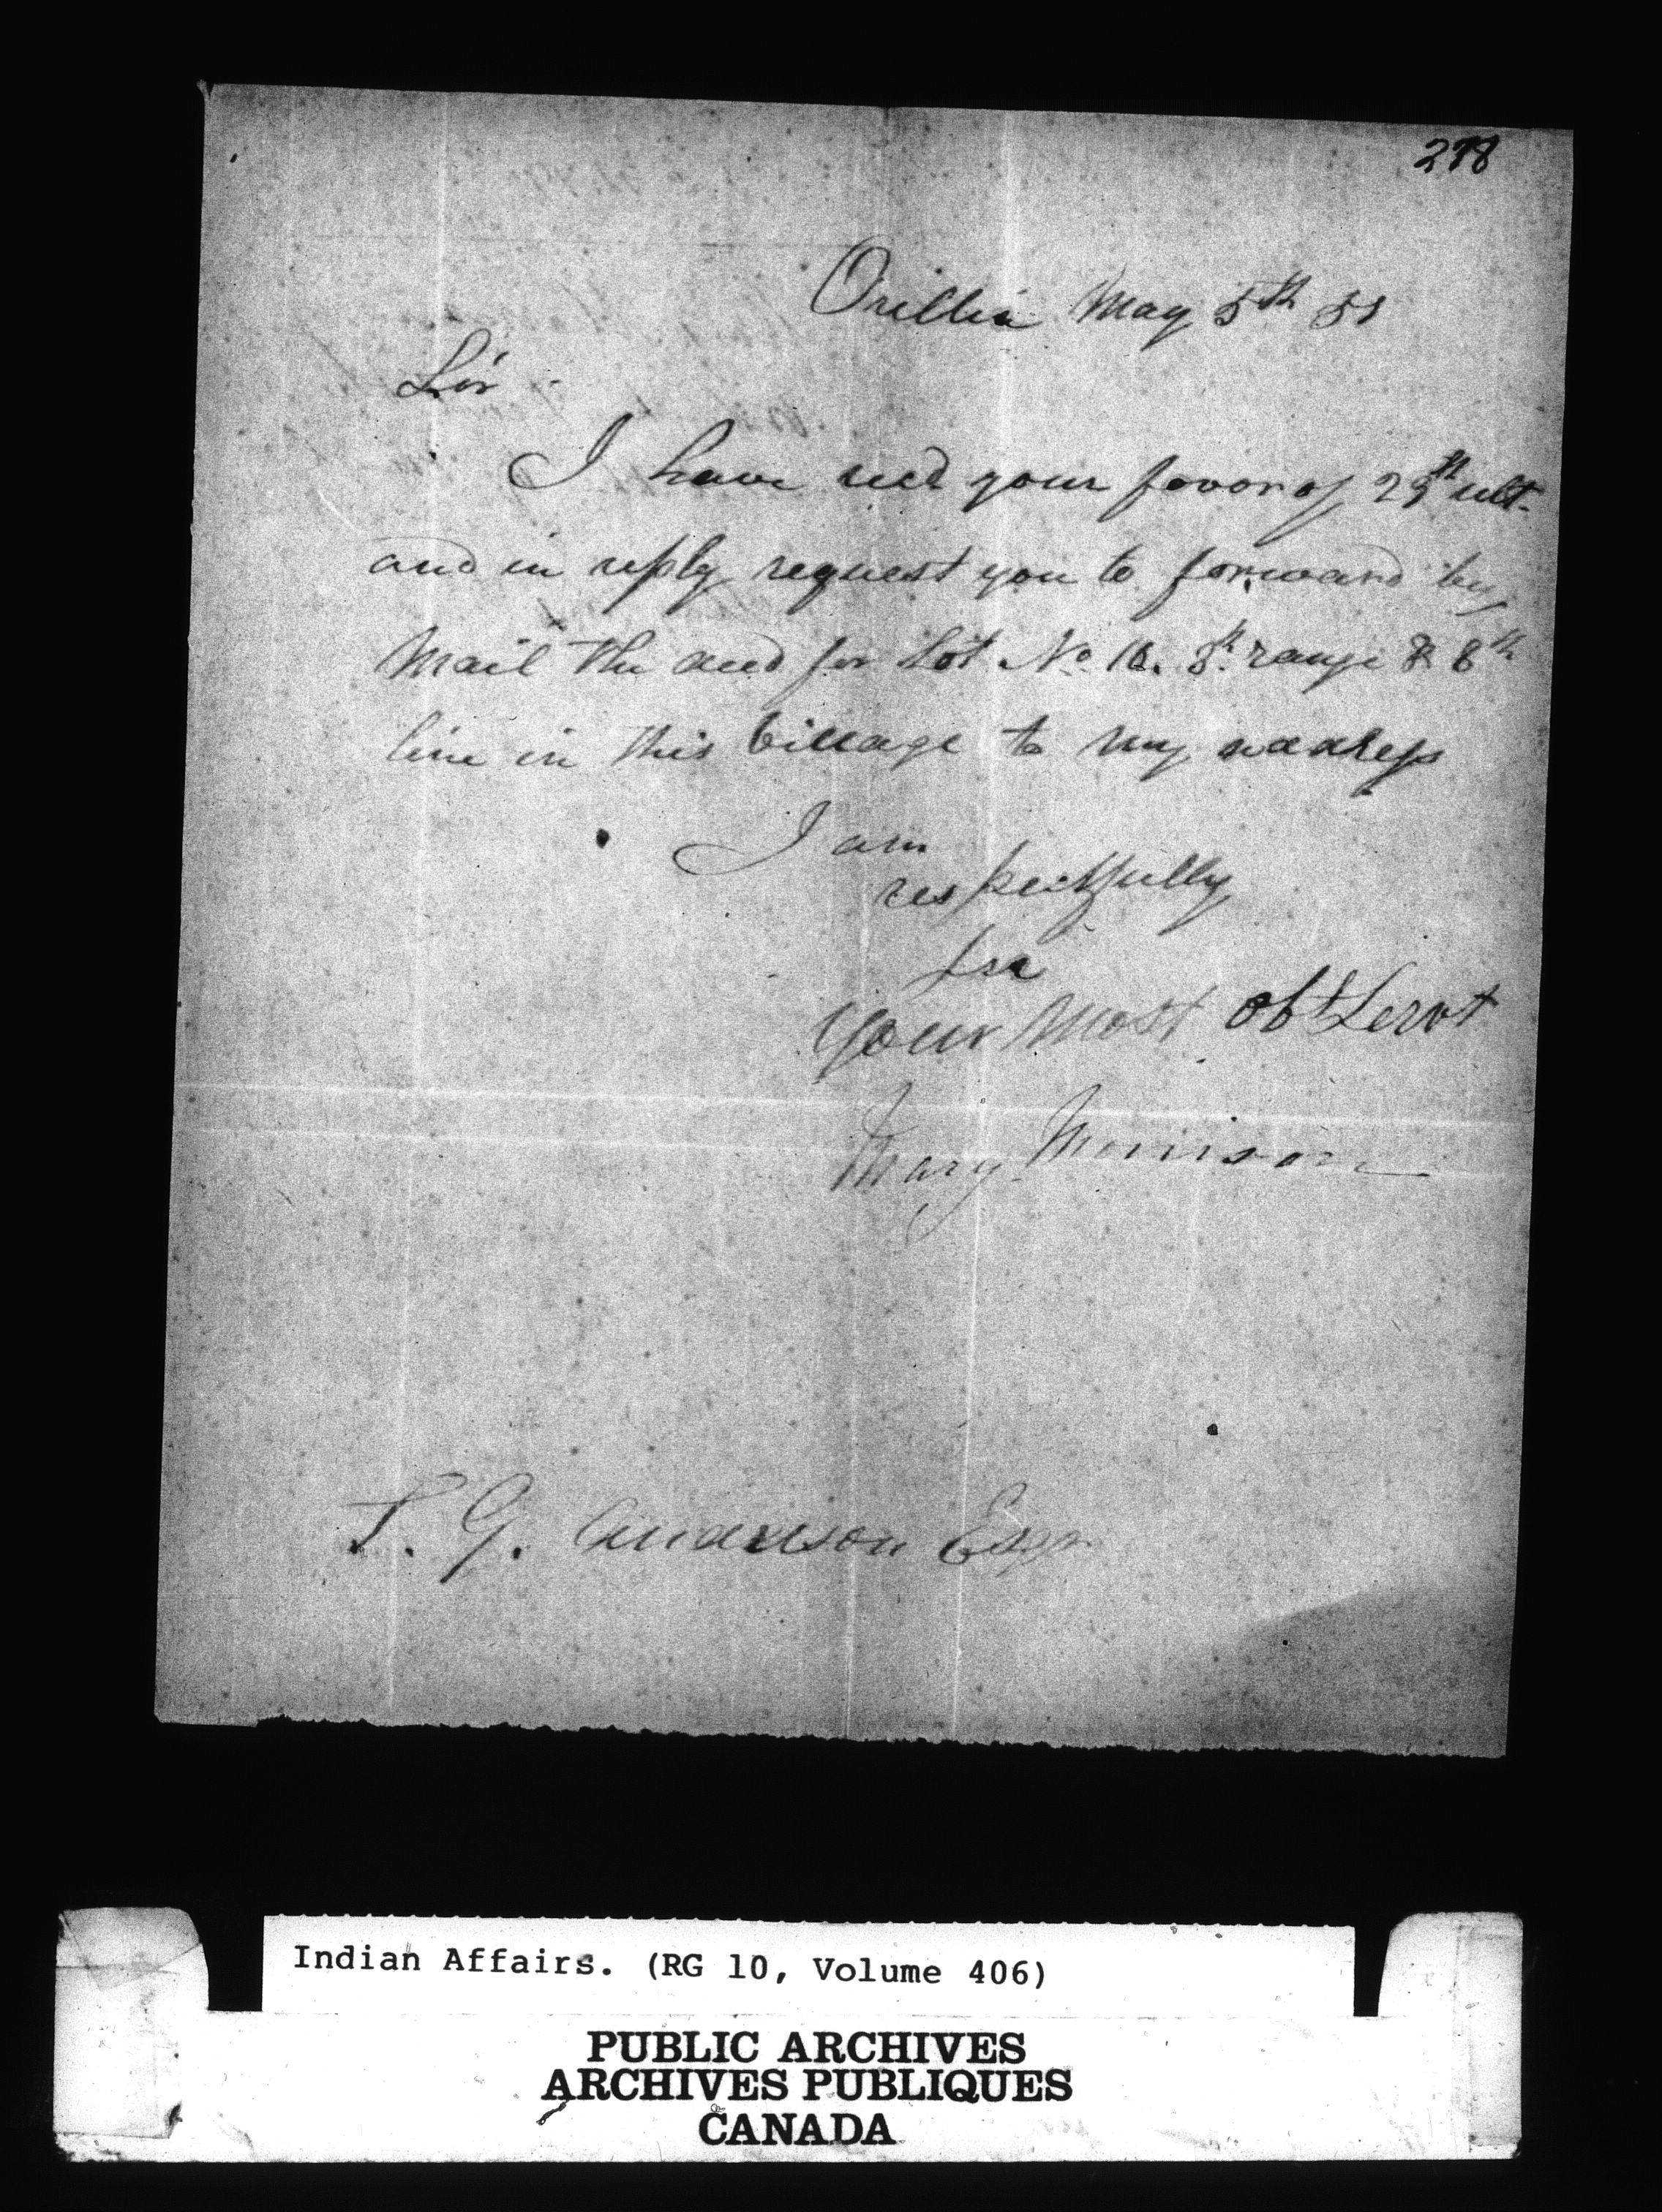 278
Orillia May 5th 51
Sir
I have recd your favor of 29th ult.
and in reply request you to forward by
Mail the deed for Lot No 10. 5th range & 8th
line in this Village to my address
I am
respectfully
Sir
Your Most Obt Servt
Mary Morrison
T. G. Anderson Esqr
Indian Affairs. (RG 10, Volume 406)
PUBLIC ARCHIVES
ARCHIVES PUBLIQUES
CANADA